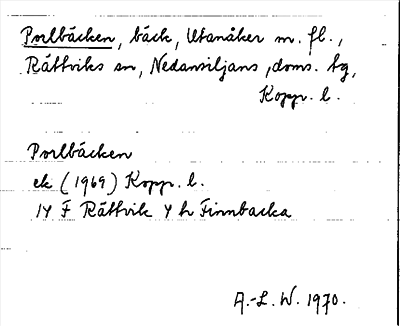 Porlbäcken, bäck, Utanåker m. fl.,
Rättviks sn, Nedansiljans doms. tg,
Kopp. l.
Porlbäcken
ek (1969) Kopp. l.
14 F Rättvik 4 h Finnbacka
A.-L. W. 1970.